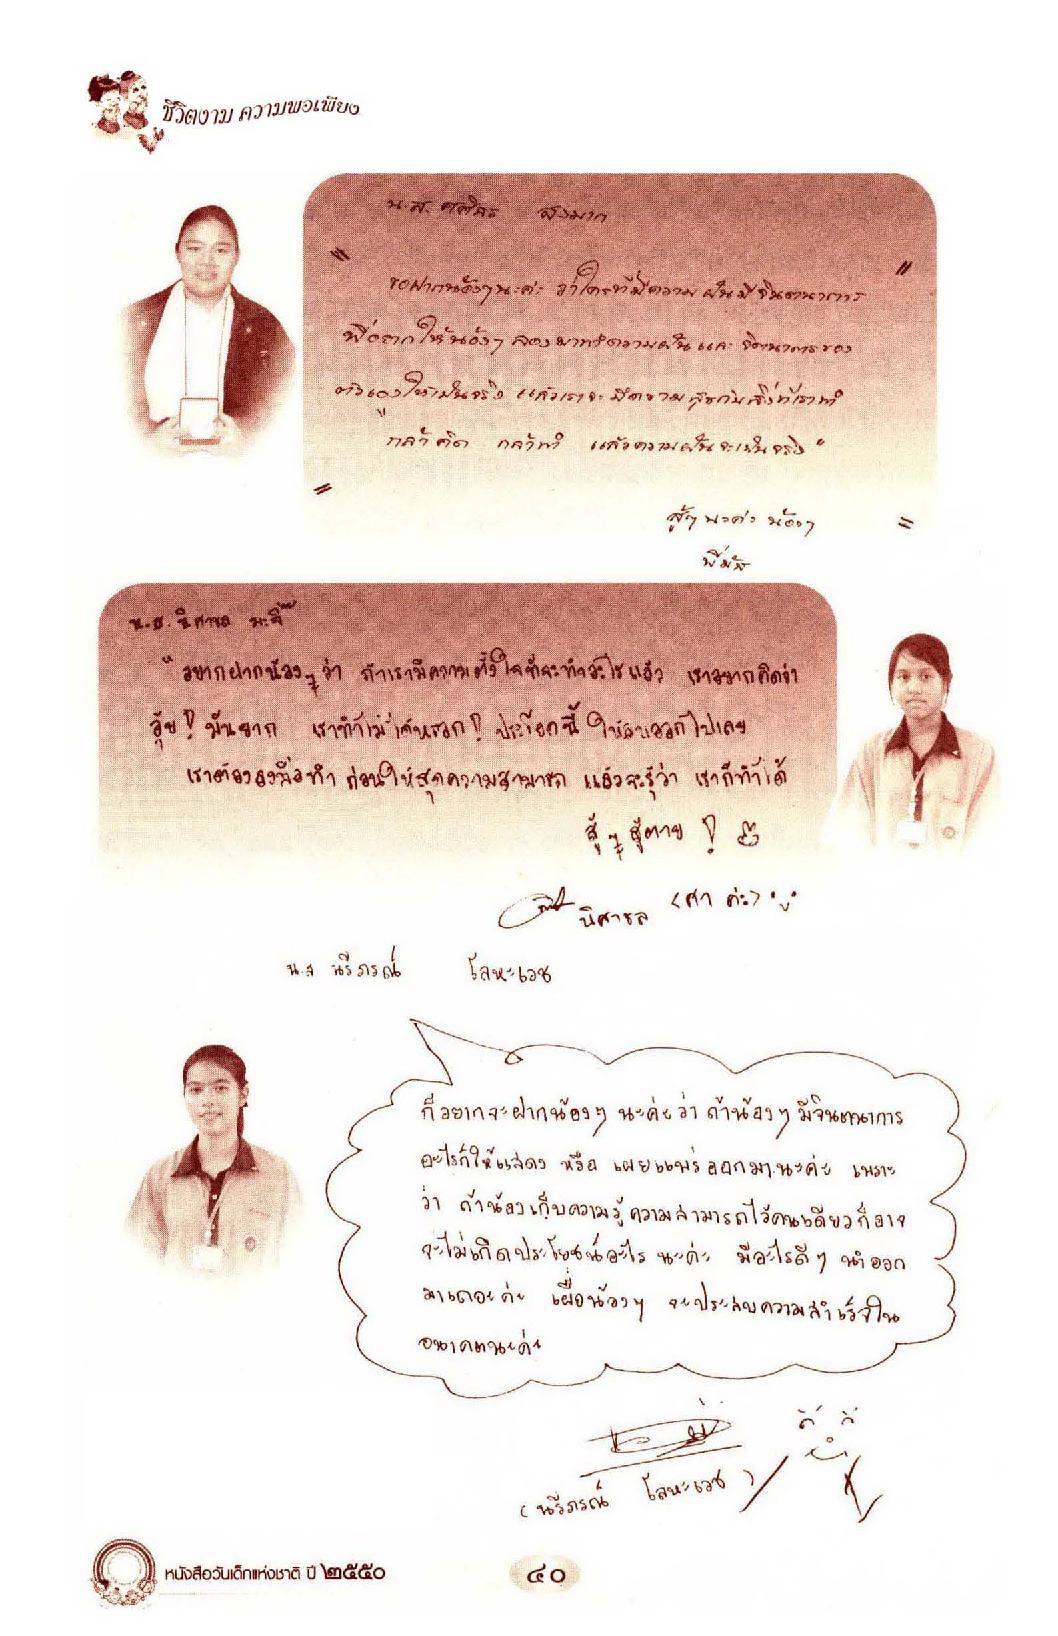 ชีวิตงาม ความพอเพียง
น.ส. ศศิธร สงมาก
"
"
ขอฝากน้องๆนะค่ะ ว่าใครที่มีความฝันมีจินตนาการ
พี่อยากให้น้องๆ ลองมาทำความฝัน และ จินตนาการของ
ตัวเองให้เป็นจริง แล้วเราจะมีความสุขกับสิ่งที่เราทำ
"กล้าคิด กล้าทำ แล้วความฝันจะเป็นจริง"
"
สู้ๆ นะค่ะ น้องๆ
"
น.ส. นิศาชล มะลี
"อยากฝากน้องๆว่า ถ้าเรามีความตั้งใจที่จะทำอะไรแล้ว เราอยากคิดว่า
อุ้ย! มันยาก เราทำไม่ได้หรอก! ประโยคนี้ ให้ลบออกไปเลย
เราต้องลงมือทำ ก่อนให้สุดความสามารถ แล้วจะรู้ว่า เราก็ทำได้
สู้ๆ สู้ตาย !
นิศาชล (ศา ค่ะ)
น.ส นรีภรณ์ โลหะเวช
ก็อยากจะฝากน้องๆ นะค่ะว่า ถ้าน้องๆ มีจินตนาการ
อะไรก็ให้แสดง หรือ เผยแพร่ออกมานะค่ะ เพราะ
ว่า ถ้าน้องเก็บความรู้ความสามารถไว้คนเดียวก็อาจ
จะไม่เกิดประโยชน์อะไร นะค่ะ มีอะไรดีๆ นำออก
มาเถอะค่ะ เผื่อน้องๆ จะประสบความสำเร็จใน
อนาคตนะค่ะ
(นรีภรณ์ โลหะเวช)
หนังสือวันเด็กแห่งชาติ ปี ๒๕๕๐
๔๐